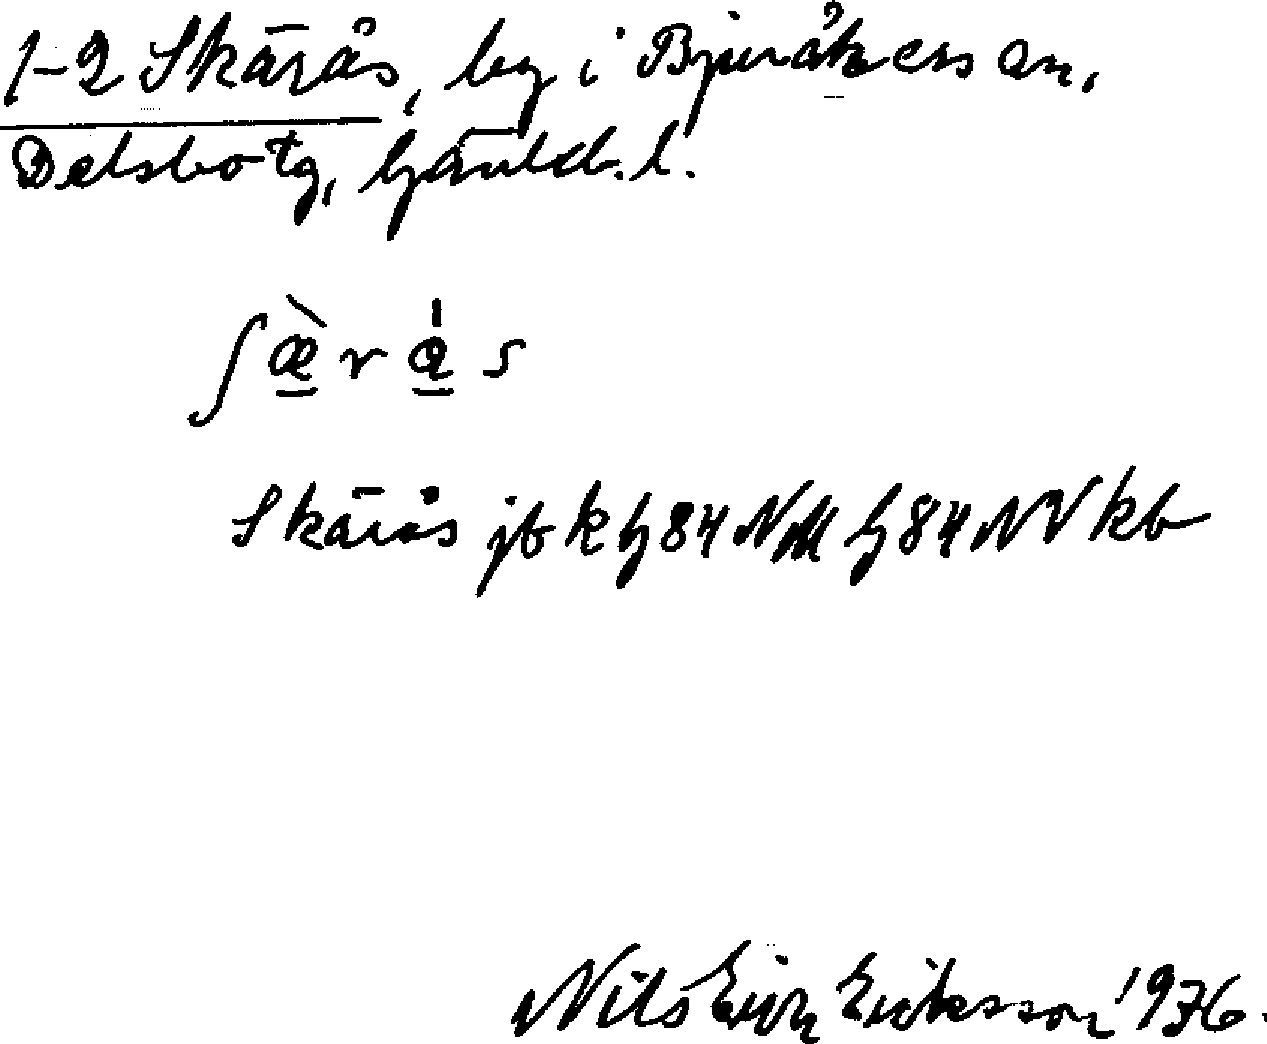 1-2 Skärås, by i Bjuråkers sn,
Delsbo tg, Gävleb. l.
ʃæ̀rås
Skärås jb k G 84 NM G 84 NV kb
Nils Erik Eriksson 1936.